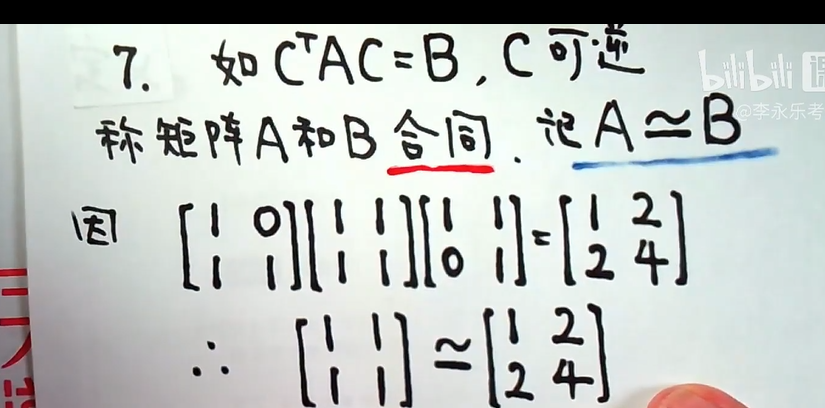 7. 如 CᵀAC=B, C 可逆
称矩阵A和B 合同. 记 A≃B
因 [1 0; 1 1][1 1; 1 1][1 1; 0 1]=[1 2; 2 4]
∴ [1 1; 1 1]≃[1 2; 2 4]
bilibili 课
@李永乐考